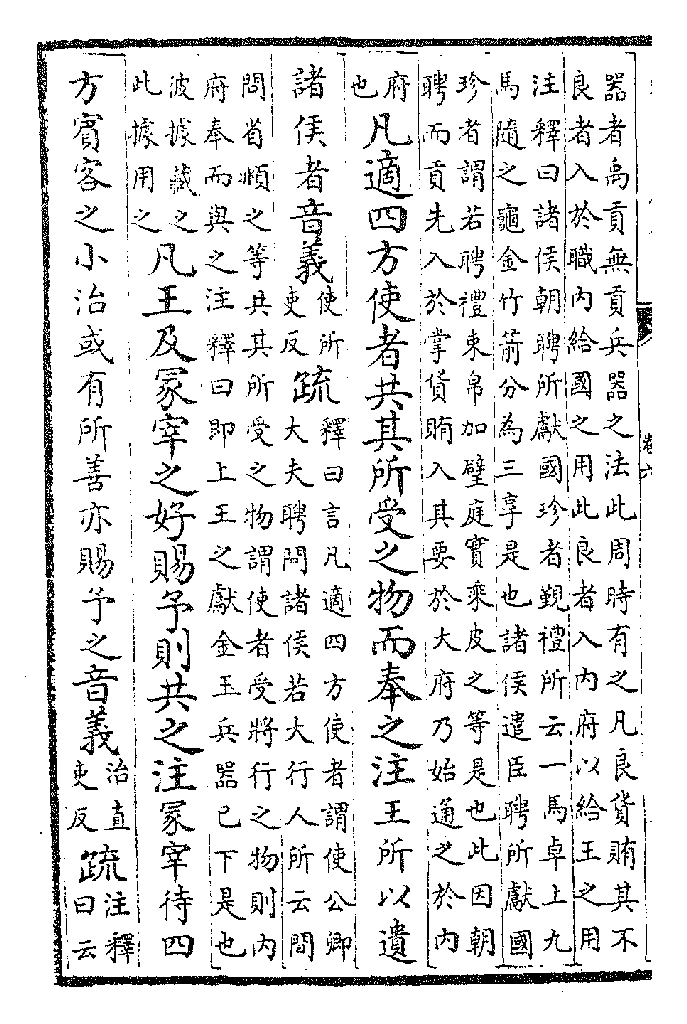 器者禹貢無貢兵器之法此周時有之凡良貨賄其不
良者入於職內給國之用此良者入內府以給王之用
注釋曰諸侯朝聘所獻國珍者覲禮所云一馬卓上九
馬隨之龜金竹箭分為三享是也諸侯遣臣聘所獻國
珍者謂若聘禮束帛加璧庭實乘皮之等是也此因朝
聘而貢先入於掌貨賄入其要於大府乃始通之於內
府
也
凡適四方使者共其所受之物而奉之注王所以遺
諸侯者音義
使所
吏反
疏
釋曰言凡適四方使者謂使公卿
大夫聘問諸侯若大行人所云間
問省頫之等共其所受之物謂使者受將行之物則內
府奉而與之注釋曰即上王之獻金玉兵器已下是也
波據藏之
此據用之
凡王及冢宰之好賜予則共之注冢宰待四
方賓客之小治或有所善亦賜予之音義
治直
吏反
疏
注釋
曰云
卷六